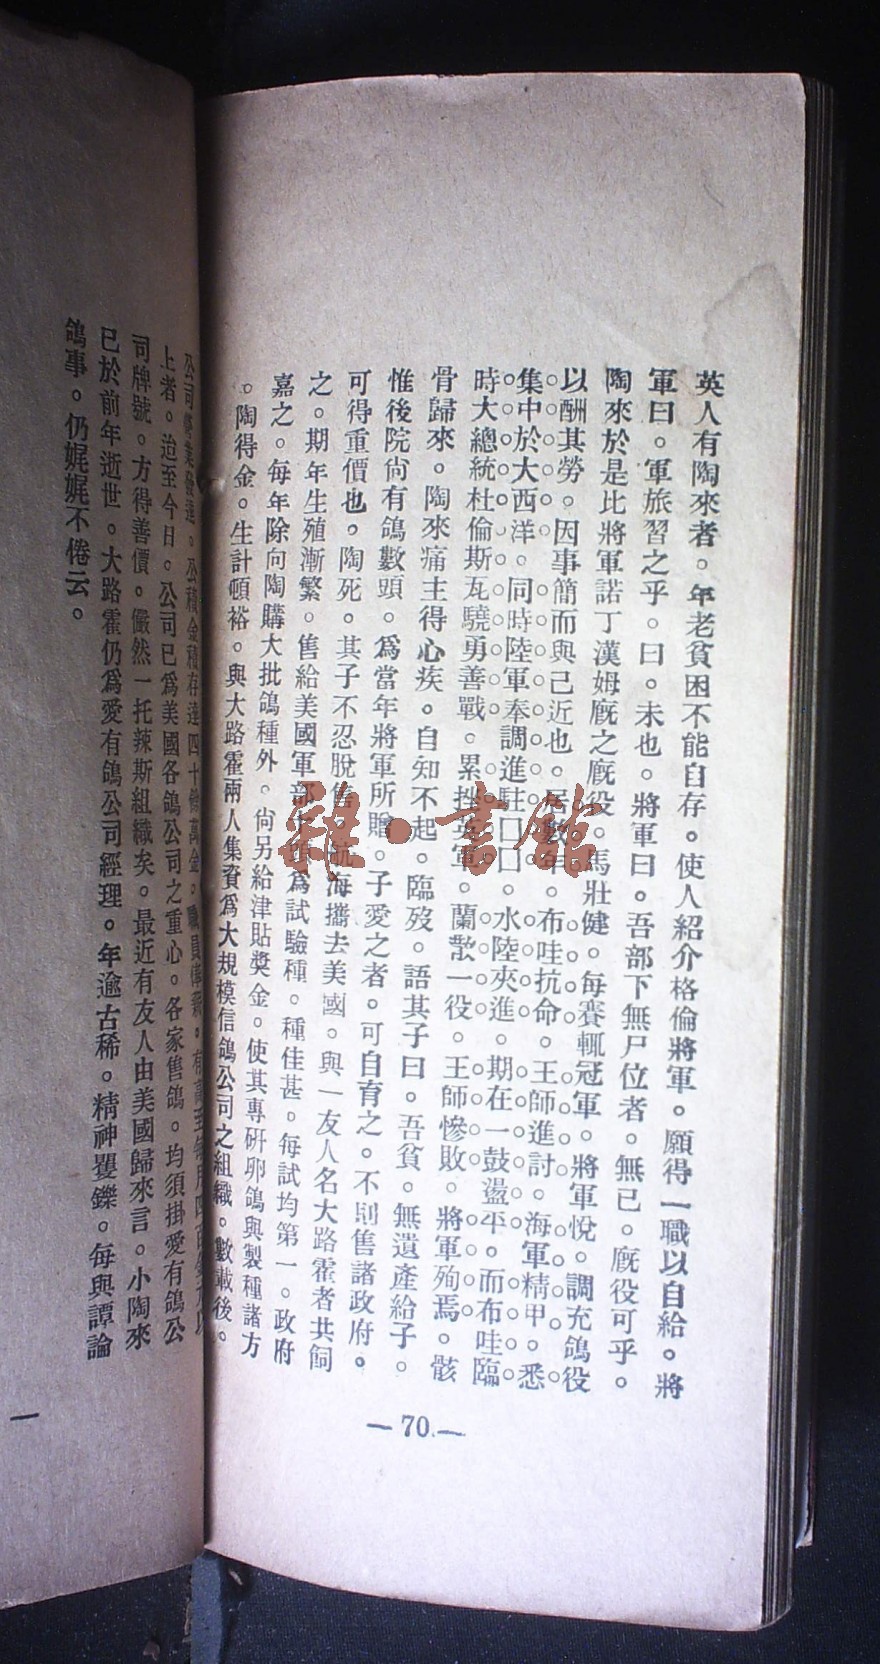 英人有陶來者。年老貧困不能自存。使人紹介格倫將軍。願得一職以自給。將
軍曰。軍旅習之乎。曰。未也。將軍曰。吾部下無尸位者。無已。廐役可乎。
陶來於是比將軍諾丁漢姆廐之廐役。馬壯健。每賽輒冠軍。將軍悅。調充鴿役
以酬其勞。因事簡而與己近也。居數年。布哇抗命。王師進討。海軍精甲。悉
集中於大西洋。同時陸軍奉調進駐口口。水陸夾進。期在一鼓盪平。而布哇臨
時大總統杜倫斯瓦驍勇善戰。累挫英軍。蘭散一役。王師慘敗。將軍殉焉。骸
骨歸來。陶來痛主得心疾。自知不起。臨歿。語其子曰。吾貧。無遺產給子。
惟後院尚有鴿數頭。爲當年將軍所贈。子愛之者。可自育之。不則售諸政府。
可得重價也。陶死。其子不忍脫售。航海攜去美國。與一友人名大路霍者共飼
之。期年生殖漸繁。售給美國軍部十頭爲試驗種。種佳甚。每試均第一。政府
嘉之。每年除向陶購大批鴿種外。尚另給津貼獎金。使其專研卵鴿與製種諸方
。陶得金。生計頓裕。與大路霍兩人集資爲大規模信鴿公司之組織。數載後。
公司營業發達。公積金積存達四十餘萬金。職員俸薪。有高至每月四百
上者。迨至今日。公司已爲美國各鴿公司之重心。各家售鴿。均須掛愛有鴿公
司牌號。方得善價。儼然一托辣斯組織矣。最近有友人由美國歸來言。小陶來
已於前年逝世。大路霍仍爲愛有鴿公司經理。年逾古稀。精神矍鑠。每與譚論
鴿事。仍娓娓不倦云。
—70.—
雜·書館